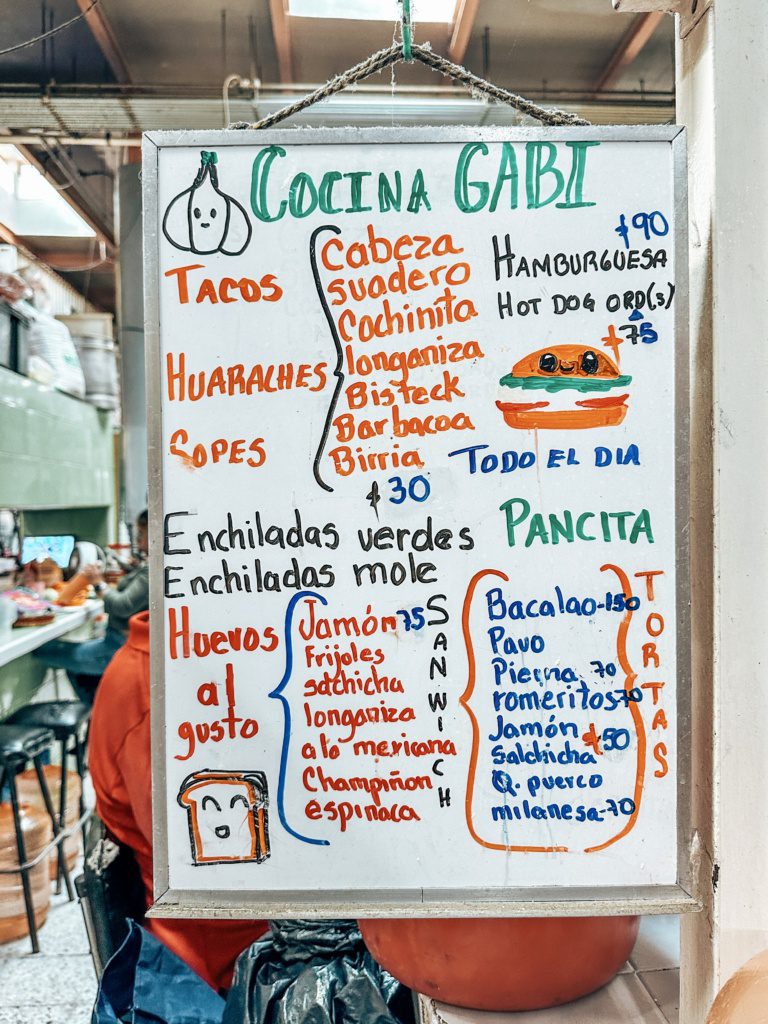 COCINA GABI
TACOS
HUARACHES
SOPES
Cabeza
suadero
Cochinita
longaniza
Bisteck
Barbacoa
Birria
$30
$90
HAMBURGUESA
HOT DOG ORD(3)
$75
TODO EL DIA
Enchiladas verdes
Enchiladas mole
PANCITA
Huevos
al
gusto
Jamón 75
Frijoles
salchicha
longaniza
a lo mexicana
Champiñon
espinaca
SANWICH
Bacalao-150
Pavo
Pierna 70
romeritos 70
Jamón $50
Salchicha
Q. puerco
milanesa-70
TORTAS